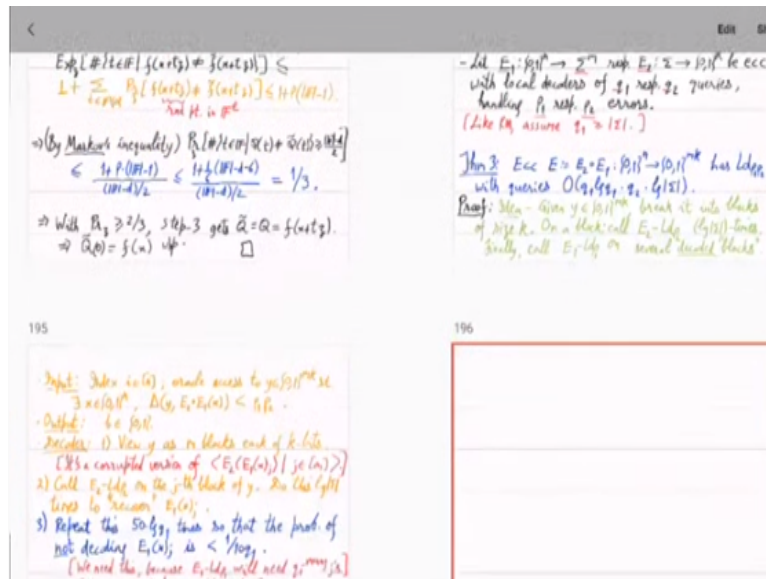 Edit
Exp_z[#{t∈F | f(x+tz) ≠ f̃(x+tz)}] ≤
1 + Σ Pr[f(x+tz) ≠ f̃(x+tz)] ≤ 1+P(|F|-1).
⇒ (By Markov's inequality)
≤ = 1/3.
⇒ With Pr_z ≥ 2/3, step-3 gets Q̃ = Q = f(x+tz).
⇒ Q̃(0) = f(x) □
- Let E₁: {0,1}ⁿ → Σᵐ resp. E₂: Σ → {0,1}ᵏ be ecc
with local decoders of q₁ resp. q₂ queries,
handling ρ₁ resp. ρ₂ errors.
[Like RM, assume q₁ ≥ |Σ|.]
Thm 3: Ecc E = E₂∘E₁: {0,1}ⁿ → {0,1}ᵐᵏ has Ldec
with queries O(q₁lgq₁·q₂·lg|Σ|).
Proof: Idea - Given y∈{0,1}ᵐᵏ break it into blocks
of size k. On a block call E₂-Ldec (lg|Σ|)-times.
Finally, call E₁-Ldec on several decoded blocks.
195
196
Input: Index i∈[n], oracle access to y∈{0,1}ᵐᵏ st
∃ x∈{0,1}ⁿ, Δ(y, E₂∘E₁(x)) < ρ₁ρ₂.
- Output: b ∈ {0,1}.
- Decoder: 1) View y as m blocks each of k-bits.
[It's a corrupted version of <E₂(E₁(x)ⱼ) | j∈[m]>.]
2) Call E₂-Ldec on the j-th block of y. Do this lg|Σ|
times to "recover" E₁(x)ⱼ.
3) Repeat this 50·lgq₁ times so that the prob. of
not decoding E₁(x)ⱼ is < 1/10q₁.
[We need this, because E₁-Ldec will need q₁-many j's]